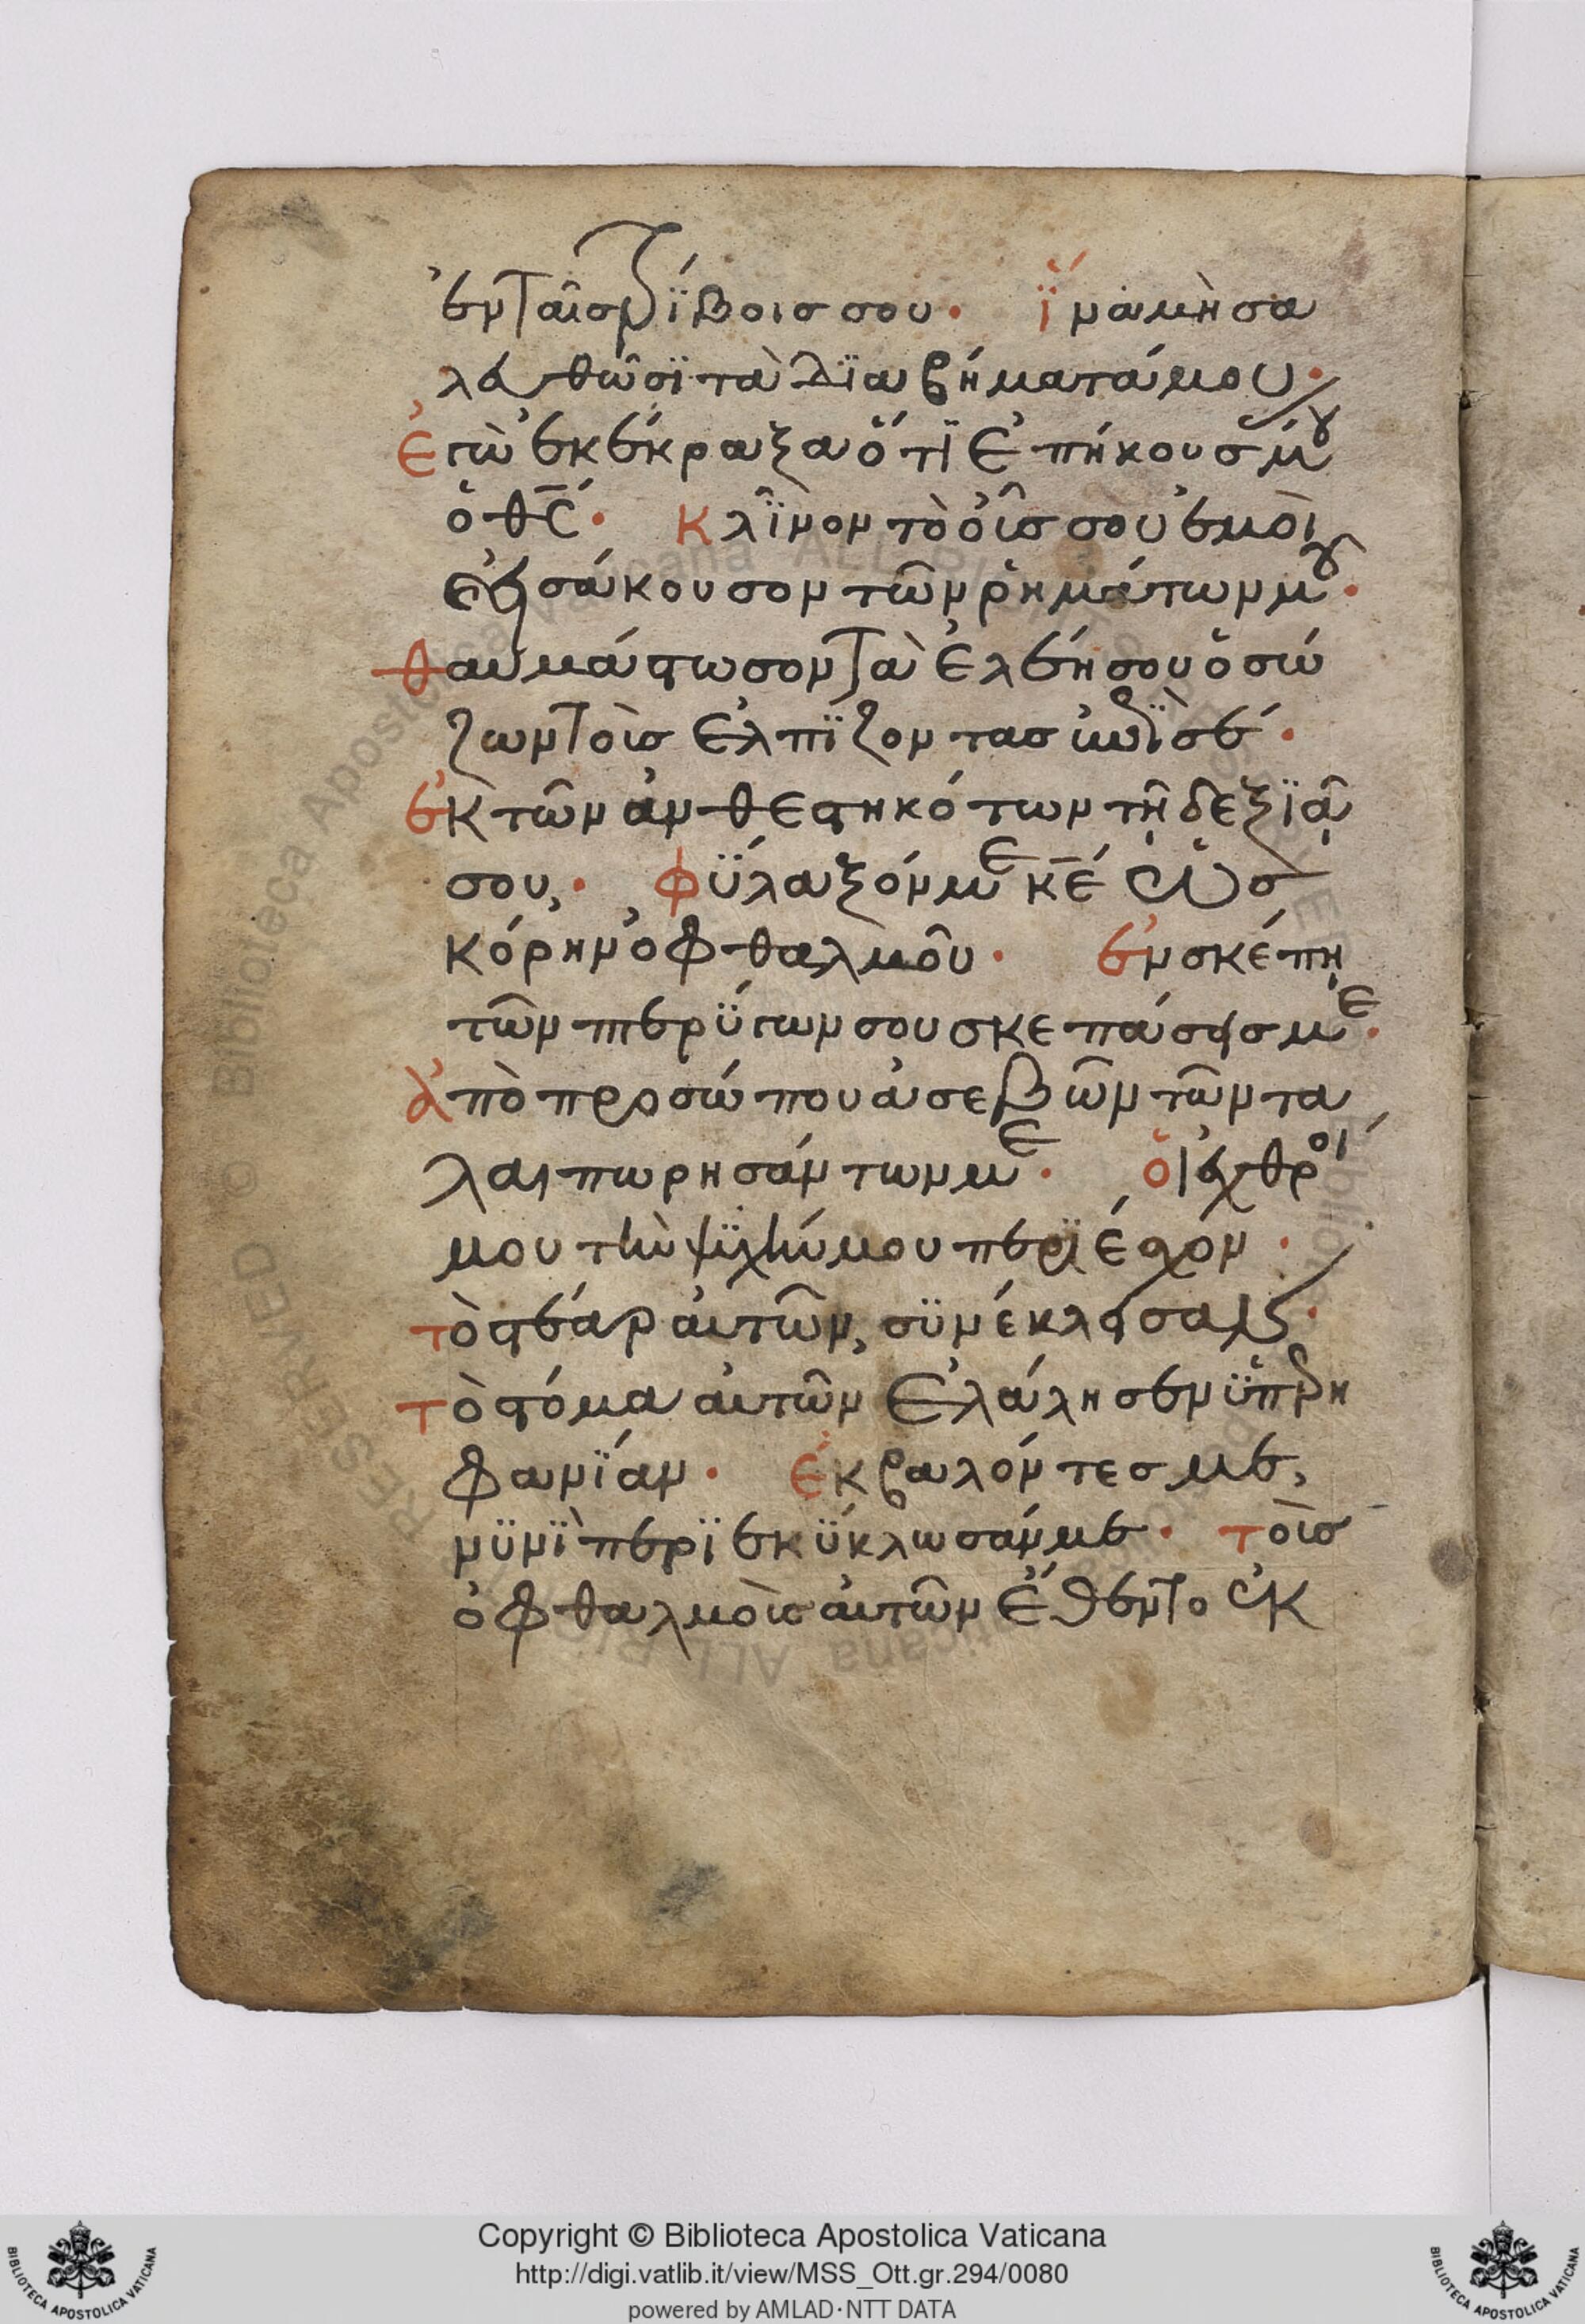 ἐν ταῖς τρίβοις σου· ἵνα μὴ σα
λευθῶσϊ τὰ δϊαβήματά μου·
Ἐγὼ ἐκέκραξα ὅτϊ ἐπήκουσάς μου
ὁ θς· Κλῖνον τὸ οὖς σου ἐμοὶ
εἰσάκουσον τῶν ῥημάτων μου·
θαυμάστωσον τὰ ἐλέη σου ὁ σώ
ζων τοὺς ἐλπϊζοντας ἐπὶ σέ·
ἐκ τῶν ἀνθεστηκότων τῇ δεξϊᾷ
σου· φύλαξόν με κε ὡς
κόρην ὀφθαλμοῦ· ἐν σκέπῃ
τῶν πτερύγων σου σκεπάσεις με·
Ἀπὸ προσώπου ἀσεβῶν τῶν τα
λαιπωρησάντων με· οἱ ἐχθροί
μου τὴν ψϋχήν μου περϊέσχον·
τὸ στέαρ αὐτῶν, συνέκλεισαν·
τὸ στόμα αὐτῶν ἐλάλησεν ὑπερη
φανϊαν· ἐκβαλόντες με,
νϋνϊ περϊεκϋκλωσάν με· τοὺς
ὀφθαλμοὺς αὐτῶν ἔθεντο ἐκ
Copyright © Biblioteca Apostolica Vaticana
http://digi.vatlib.it/view/MSS_Ott.gr.294/0080
powered by AMLAD·NTT DATA